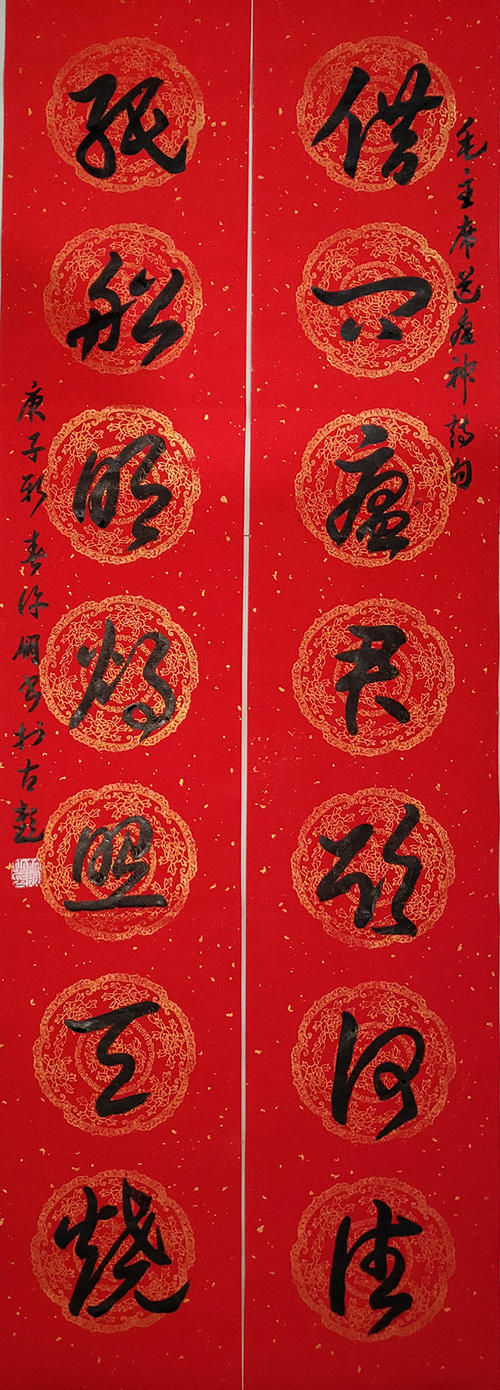 毛主席送瘟神诗句
借问瘟君欲何往
纸船明烛照天烧
庚子新春许写于古